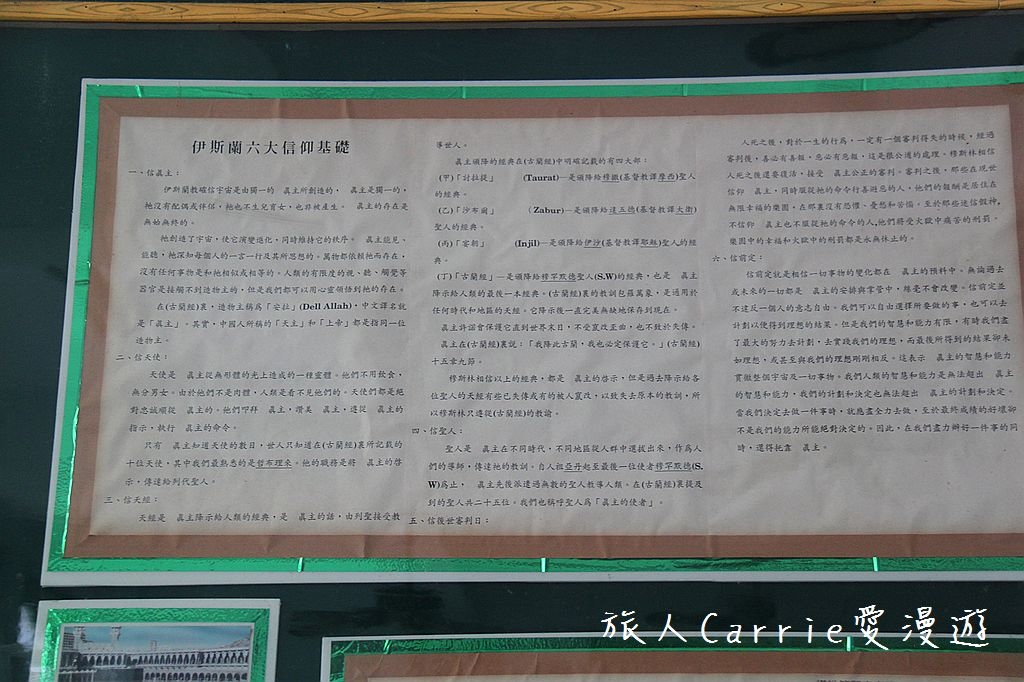 伊斯蘭六大信仰基礎
一、信真主：
伊斯蘭教確信宇宙是由獨一的　真主所創造的，　真主是獨一的，
祂沒有配偶或伴侶，祂也不生兒育女，也非被產生。　真主的存在是
無始無終的。
祂創造了宇宙，使它演變進化，同時維持它的秩序。　真主能見、
能聽，祂深知每個人的一言一行及其所思想的。萬物都依賴祂而存在，
沒有任何事物是和祂相似或相等的。人類的有限度的視、聽、觸覺等
器官是接觸不到造物主的，但是我們都可以用心靈領悟到祂的存在。
在(古蘭經)裏，造物主稱爲「安拉」(Dell Allah)，中文譯名就
是「真主」。其實，中國人所稱的「天主」和「上帝」都是指同一位
造物主。
二、信天使：
天使是　真主從無形體的光上造成的一種靈體。他們不用飲食，
無分男女。由於他們不是肉體，人類是看不見他們的。天使們都是絕
對忠誠順從　真主的。他們叩拜　真主，讚美　真主，遵從　真主的
指示，執行　真主的命令。
只有　真主知道天使的數目，世人只知道在(古蘭經)裏所記載的
十位天使，其中我們最熟悉的是哲布理來。他的職務是將　真主的啓
示，傳達給列代聖人。
三、信天經：
天經是　真主降示給人類的經典，是　真主的話，由列聖接受教
導世人。
真主頒降的經典在(古蘭經)中明確記載的有四大部：
(甲)「討拉提」　(Taurat)—是頒降給穆撒(基督教譯摩西)聖人
的經典。
(乙)「沙布爾」　(Zabur)—是頒降給達五德(基督教譯大衛)
聖人的經典。
(丙)「寧朝」　(Injil)—是頒降給伊沙(基督教譯耶穌)聖人的經
典。
(丁)「古蘭經」—是頒降給穆罕默德聖人(S.W)的經典，也是　真主
降示給人類的最後一本經典。(古蘭經)裏的教訓包羅萬象，是適用於
任何時代和地區的天經。它降示後一直完美無缺地保存到現在。
真主許諾會保護它直到世界末日，不受竄改歪曲，也不致於失傳。
真主在(古蘭經)裏說：「我降此古蘭，我也必定保護它。」(古蘭經)
十五章九節。
穆斯林相信以上的經典，都是　真主的啓示，但是過去降示給各
位聖人的天經有些已失傳或有的被人竄改，以致失去原本的教訓，所
以穆斯林只遵從(古蘭經)的教諭。
四、信聖人：
聖人是　真主在不同時代，不同地區從人群中選拔出來，作爲人
們的導師，傳達祂的教訓。自人祖亞丹起至最後一位使者穆罕默德(S.
W)爲止，　真主先後派遣過無數的聖人教導人類。在(古蘭經)裏提及
到的聖人共二十五位。我們也稱呼聖人爲「真主的使者」。
五、信後世審判日：
人死之後，對於一生的行爲，一定有一個審判得失的時候，經過
審判後，善必有善報，惡必有惡報，這是很公道的處理。穆斯林相信
人死之後還要復活，接受　真主公正的審判。審判之後，那些在現世
信仰　真主，同時服從祂的命令行善避惡的人，他們的報酬是居住在
無限幸福的樂園，在那裏沒有恐懼、憂愁和苦惱。至於那些迷信假神，
不信仰　真主也不服從祂的命令的人，他們將受火獄中痛苦的刑罰。
樂園中的幸福和火獄中的刑罰都是永無休止的。
六、信前定：
信前定就是相信一切事物的變化都在　真主的預料中。無論過去
或未來的一切都是　真主的安排與掌管中，絲毫不會改變。信前定並
不違反一個人的意志自由。我們可以自由選擇所要做的事，也可以去
計劃以便得到理想的結果。但是我們的智慧和能力有限，有時我們盡
了最大的努力去計劃，去實踐我們的理想，而最後所得到的結果卻未
如理想，或甚至與我們的理想剛剛相反。這表示　真主的智慧和能力
貫徹整個宇宙及一切事物。我們人類的智慧和能力是無法超出　真主
的智慧和能力，我們的計劃和決定也無法超出　真主的計劃和決定。
當我們決定去做一件事時，就應盡全力去做，至於最終成績的好壞卻
不是我們的能力所能絕對決定的。因此，在我們盡力辦好一件事的同
時，還得祂靠　真主。
旅人Carrie愛漫遊